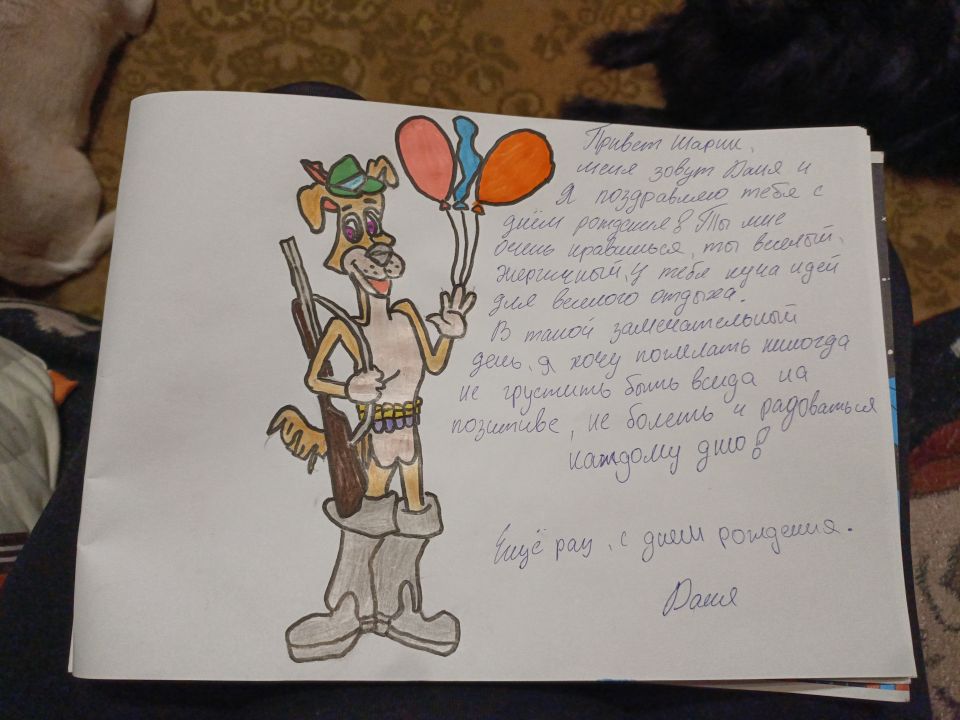 Привет Шарик,
меня зовут Даня и
Я поздравляю тебя с
днём рождения! Ты мне
очень нравишься, ты веселый,
энергичный, у тебя куча идей
для веселого отдыха.
В такой замечательный
день, я хочу пожелать никогда
не грустить быть всегда на
позитиве, не болеть и радоваться
каждому дню!
Ещё раз, с днем рождения.
Даня